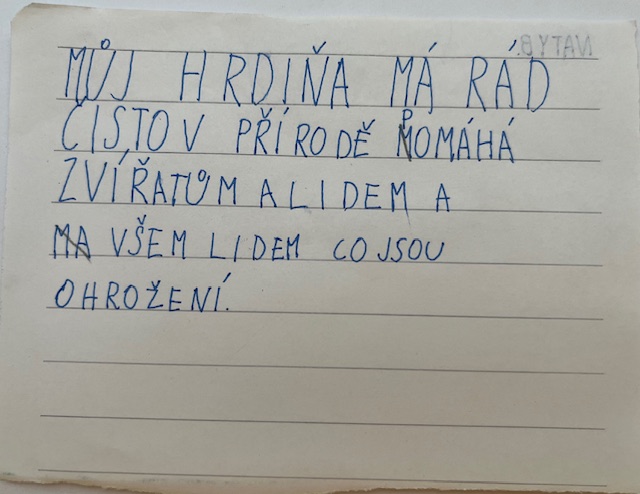 MŮJ HRDIŇA MÁ RÁD
ČISTO V PŘÍRODĚ POMÁHÁ
ZVÍŘATŮM A LIDEM A
VŠEM LIDEM CO JSOU
OHROŽENÍ.